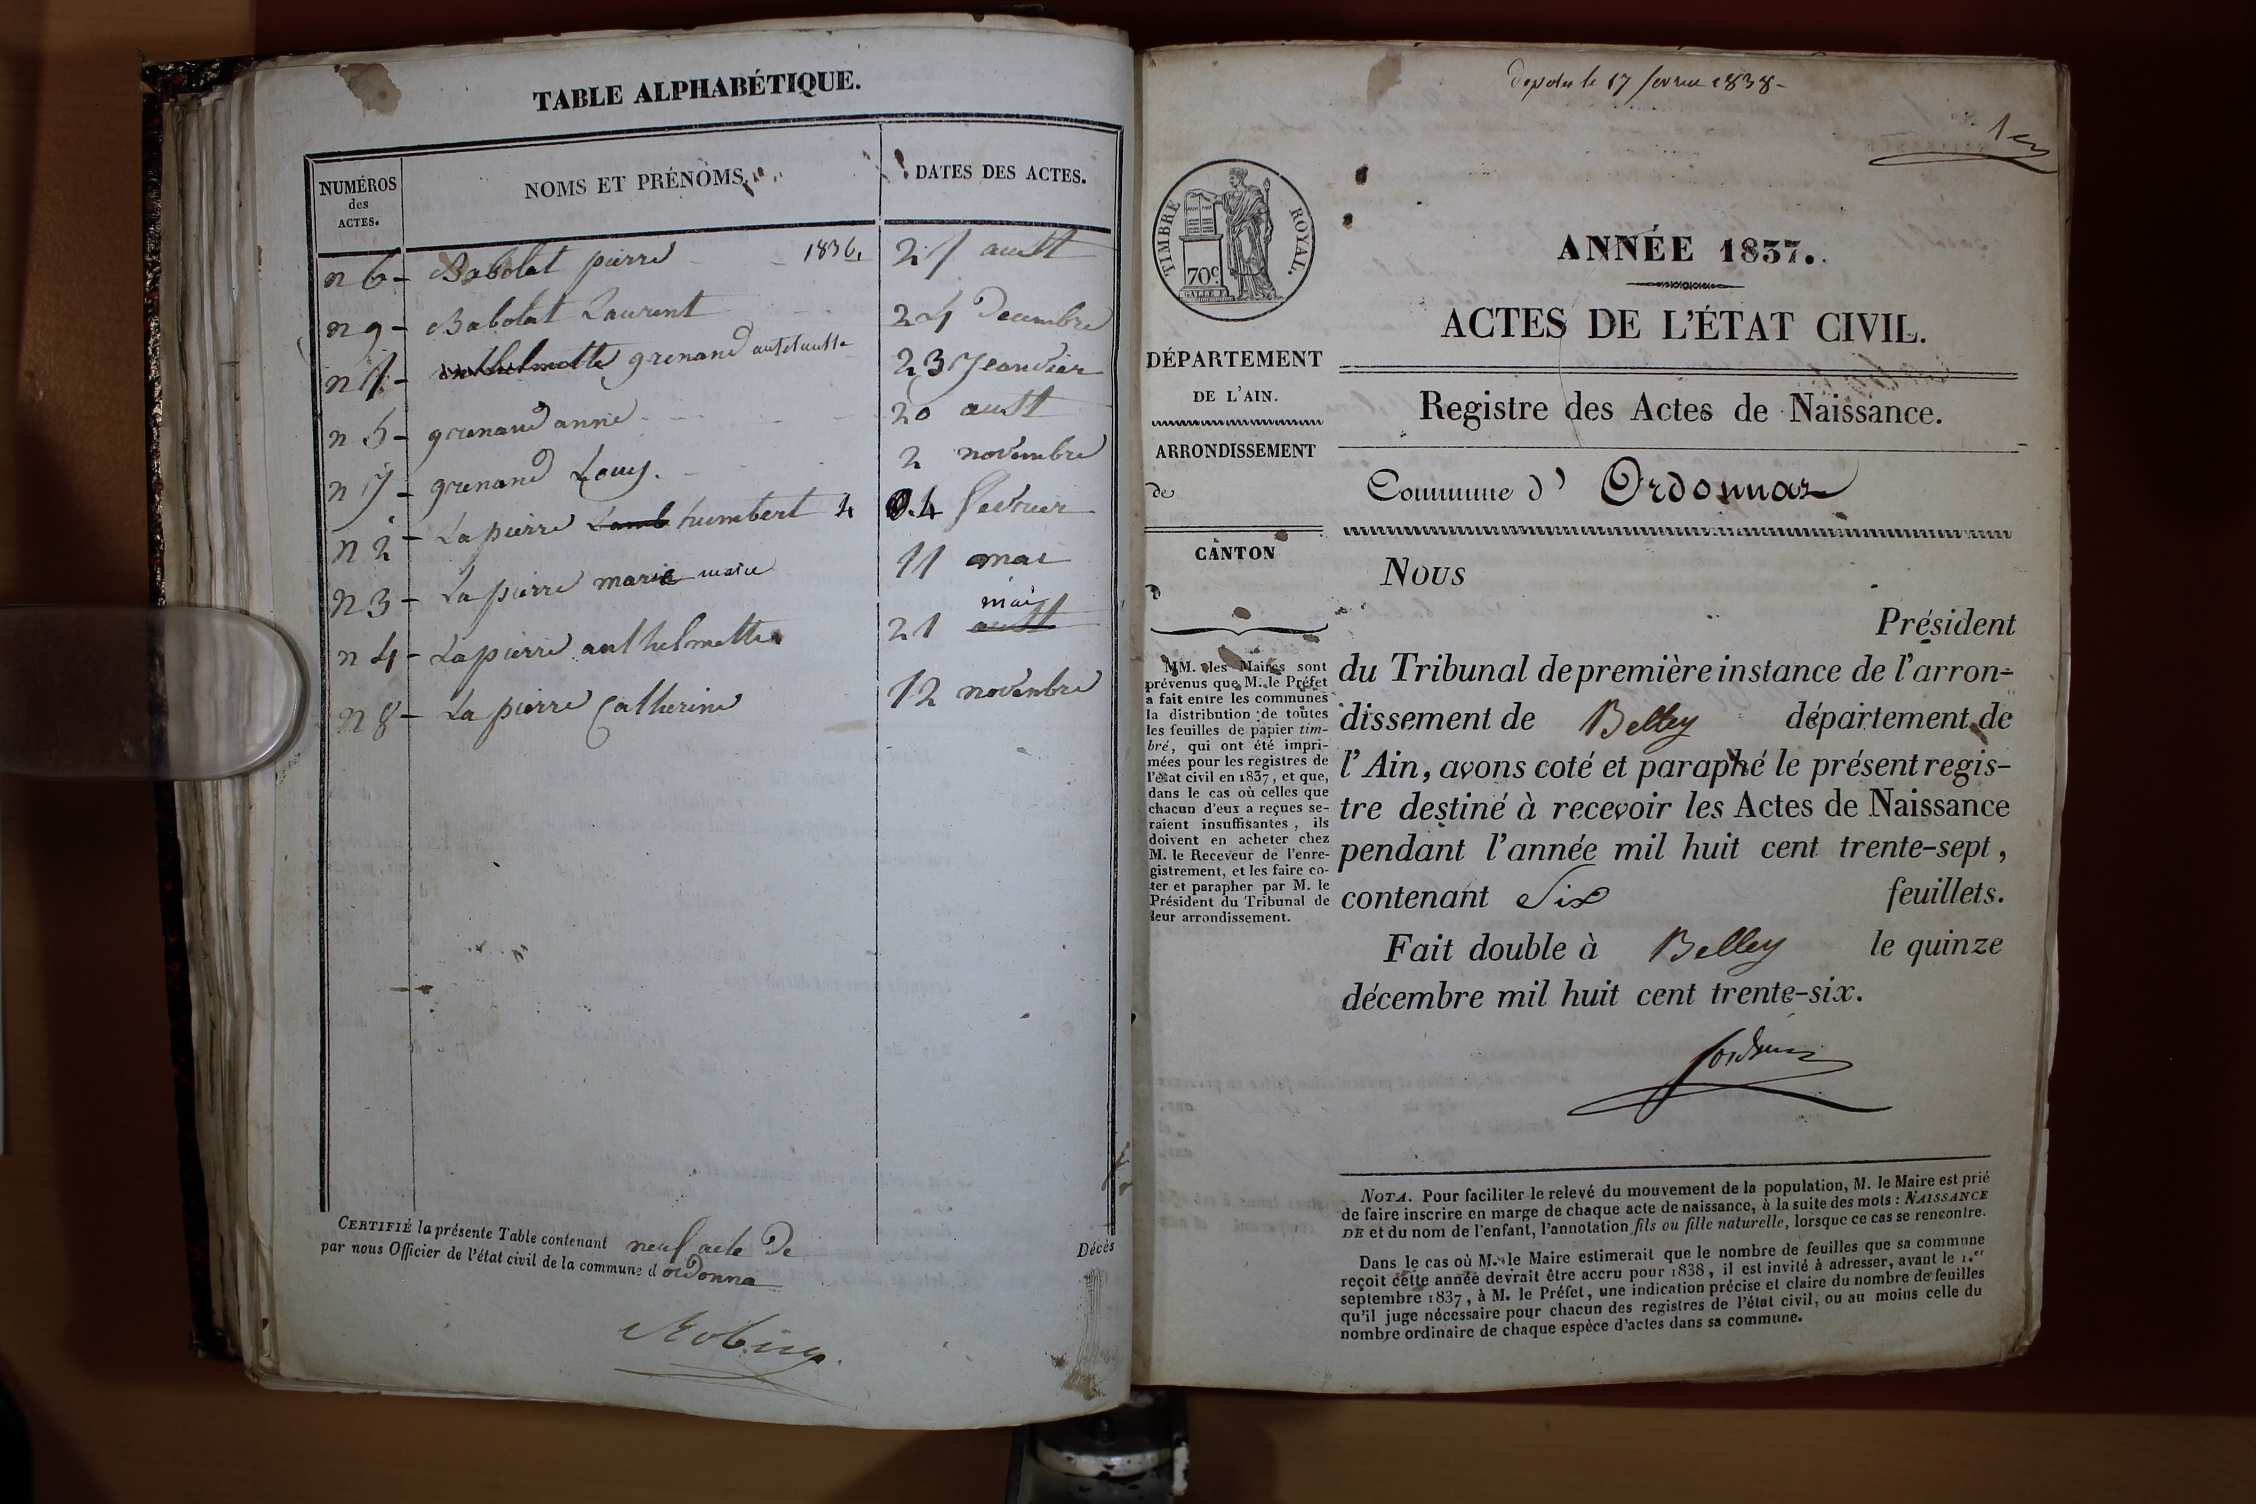 TABLE ALPHABÉTIQUE.
NUMÉROS
des
ACTES.
NOMS ET PRÉNOMS.
DATES DES ACTES.
n 6 - Babolat pierre 1836. 21 austt
n 9 - Babolat Laurent 24 Decembre
n 1 - grenand 23 Jeanvier
n 5 - grenand annie 20 austt
n 7 - grenand Louis. 2 novembre
n 2 - La pierre humbert 4 fevrier
n 3 - La pierre marie 11 mai
mai
n 4 - La pierre anthelmette 21 austt
n 8 - La pierre Catherine 12 novenbre
CERTIFIÉ la présente Table contenant neuf acte de
par nous Officier de l'état civil de la commune d ordonna
Décès
deposé le 17 fevrier 1838-
1er
TIMBRE ROYAL.
70c.
ANNÉE 1837.
ACTES DE L'ÉTAT CIVIL.
Registre des Actes de Naissance.
Commune d' Ordonnaz
DÉPARTEMENT
DE L'AIN.
ARRONDISSEMENT
de
CANTON
d
MM. les Maires sont
prévenus que M. le Préfet
a fait entre les communes
la distribution de toutes
les feuilles de papier tim-
bré, qui ont été impri-
mées pour les registres de
l'état civil en 1837, et que,
dans le cas où celles que
chacun d'eux a reçues se-
raient insuffisantes, ils
doivent en acheter chez
M. le Receveur de l'enre-
gistrement, et les faire co-
ter et parapher par M. le
Président du Tribunal de
leur arrondissement.
Nous
Président
du Tribunal de première instance de l'arron-
dissement de Belley département de
l'Ain, avons coté et paraphé le présent regis-
tre destiné à recevoir les Actes de Naissance
pendant l'année mil huit cent trente-sept,
contenant Six feuillets.
Fait double à Belley le quinze
décembre mil huit cent trente-six.
NOTA. Pour faciliter le relevé du mouvement de la population, M. le Maire est prié
de faire inscrire en marge de chaque acte de naissance, à la suite des mots : NAISSANCE
DE et du nom de l'enfant, l'annotation fils ou fille naturelle, lorsque ce cas se rencontre.
Dans le cas où M. le Maire estimerait que le nombre de feuilles que sa commune
reçoit cette année devrait être accru pour 1838, il est invité à adresser, avant le 1.er
septembre 1837, à M. le Préfet, une indication précise et claire du nombre de feuilles
qu'il juge nécessaire pour chacun des registres de l'état civil, ou au moins celle du
nombre ordinaire de chaque espèce d'actes dans sa commune.